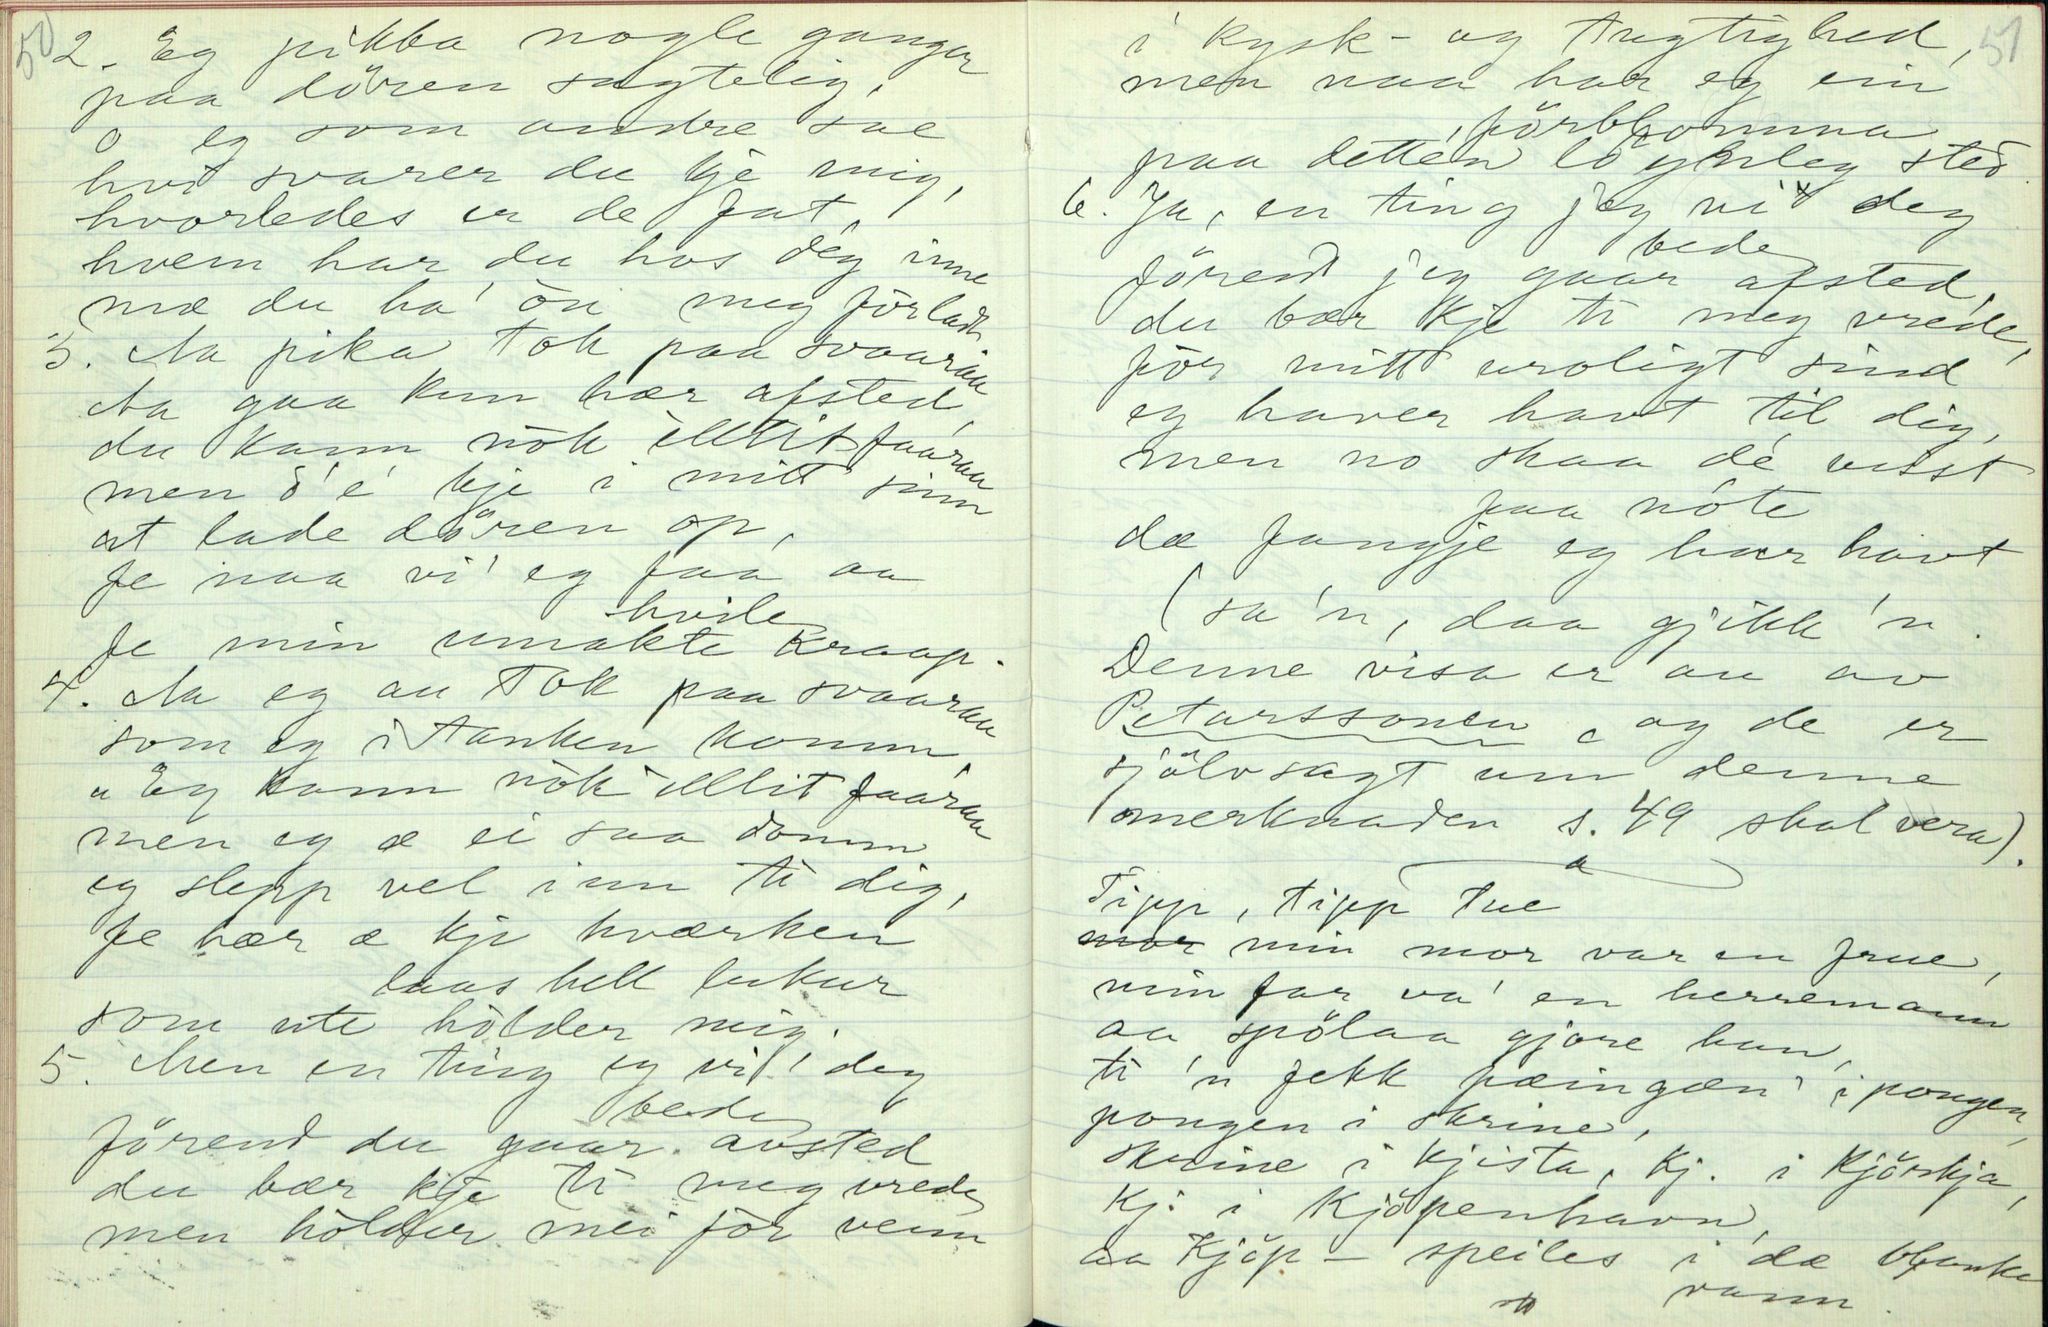 50
2. Eg pikka nogle gangar
paa dören sagtelig,
o eg som andre sae
hvi svarer du kje mig,
hvorledes er de fat,
hvem har du hos deg inne
mæ du ha' ón meg förladt
3. Aa pika tok paa svaaraa
Aa gaa kun hær afsted,
du kann nók illtit faaraa
men d'é kje i mitt sinn
at lade dören op,
fe naa vi' eg faa aa
hvile
fe min umakte kraap.
4. Aa eg au tok paa svaaraa
som eg i tanken komm,
"Eg kann nók illtit faaraa
men eg æ ei saa domm
eg slepp vel inn ti dig,
fe hær æ kje hværken
laas hell lukur
som ute hólder mig.
5. Men en ting eg vil deg
bede
förend du gaar avsted
du bær kje ti meg vrede
men hólder mei för venn
51
i kysk- og tugtighed,
men naa har eg ein
förblomma
paa detten löynleg sted.
6. Ja, en ting jeg vil deg
bede
förend jeg gaar afsted,
du bær kje ti meg vrede,
för mitt uroligt sind
eg haver havt til dig,
men no skaa dé visst
paa nóte
dæ fangje eg har havt
(sa 'n, daa gjikk 'n.
Denne visa er au av
Petarssonen, og de er
sjölvsagt um denne
merknaden s. 49 skal vera).
Tipp, tipp tue
mor min mor var en frue,
min far va' en herremann
aa spölaa gjore han,
ti 'n fekk pæingæn i pongen,
pongen i skrine,
skrine i kjista, kj. i kjörkja,
kj. i Kjöpenhavn,
aa Kjöp- speiles i dæ blanke
vann.